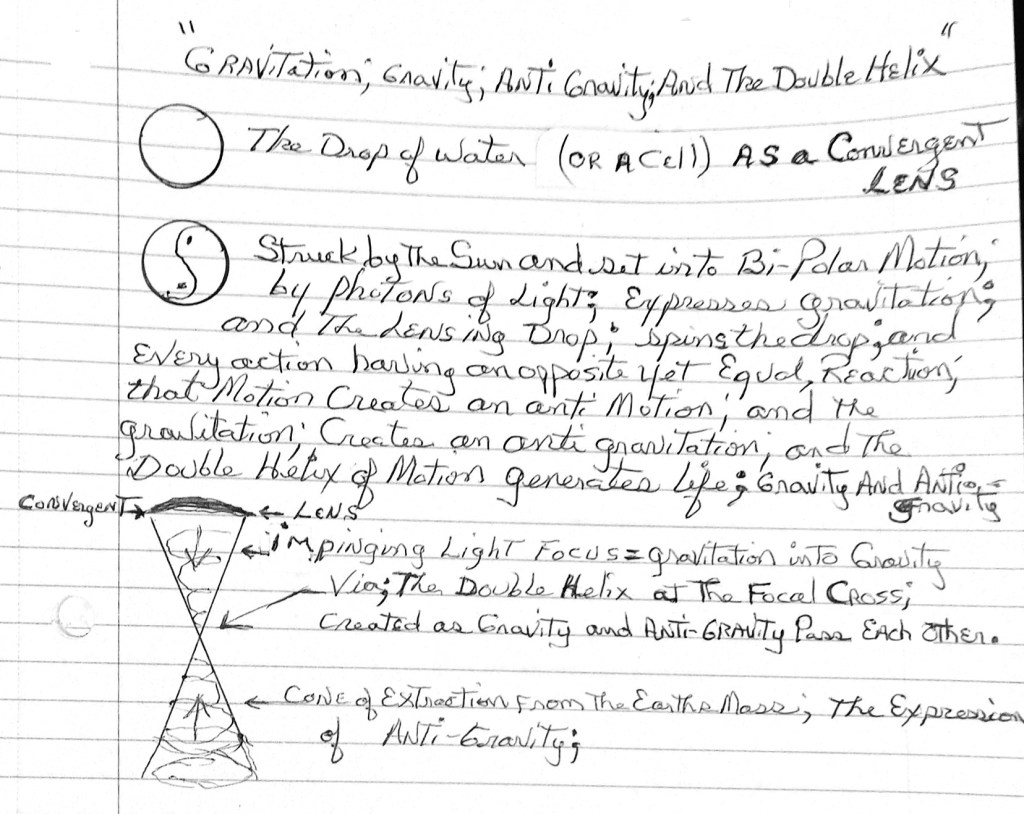 "GRAVITation; Gravity; ANTi Gravity; And The Double Helix"
The Drop of Water (OR A Cell) AS a Convergent
LENS
Struck by The Sun and set into Bi-Polar Motion;
by photons of Light; Expresses gravitation;
and The Lensing Drop; spins the drop; and
Every action having an opposite yet Equal, Reaction;
that Motion Creates an anti Motion; and the
gravitation; Creates an anti gravitation; and The
Double Helix of Motion generates Life; Gravity And Anti-
gravity
Convergent → ← LENS
← iMpinging Light Focus = gravitation into Gravity
Via; The Double Helix at The Focal Cross;
Created as Gravity and ANTi-GRAVity Pass Each Other.
← Cone of Extraction From The Earths Mass; The Expression
of ANTi-Gravity;